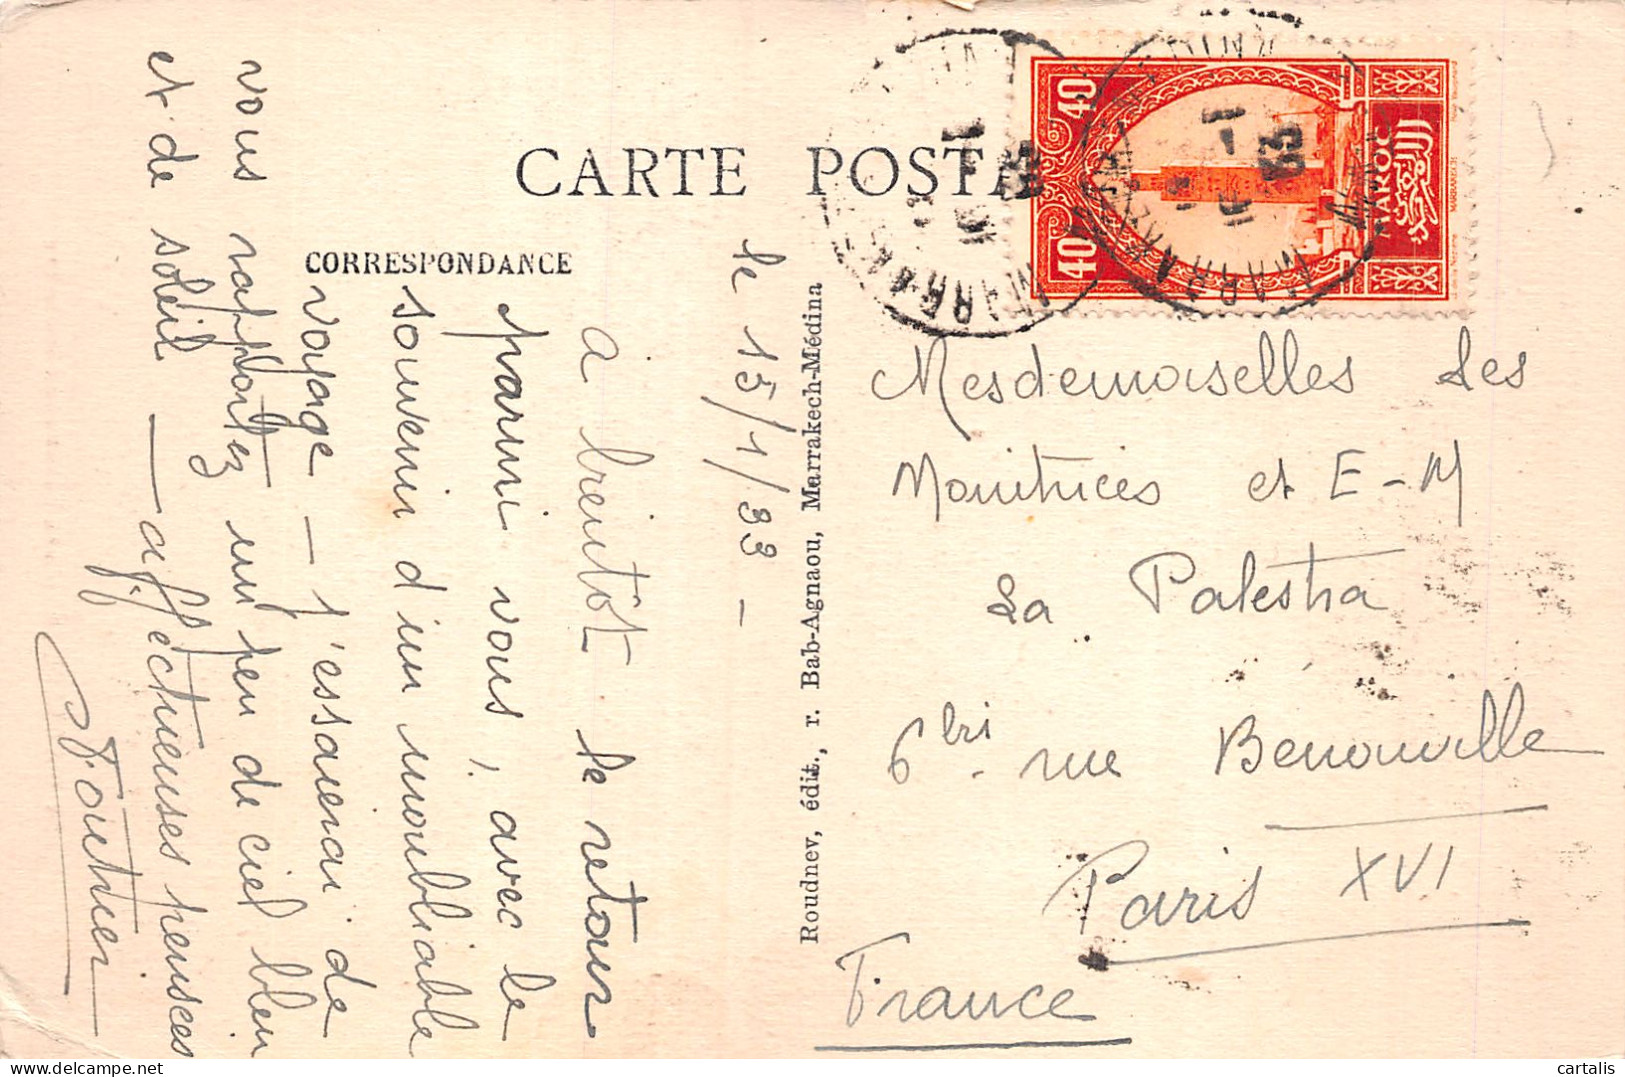 CARTE POSTALE
CORRESPONDANCE
le 15/1/33 -
à bientôt le retour
parmi vous, avec le
souvenir d'un inoubliable
voyage - j'essaierai de
vous rapportez un peu de ciel bleu
et de soleil - affectueuses pensées
Roudnev, édit., r. Bab-Agnaou, Marrakech-Médina
40
40
MAROC
MARRAKECH
33
Mesdemoiselles Les
Monitrices et E-M
La Palestra
6 rue Benouville
Paris XVI
France
cartalis